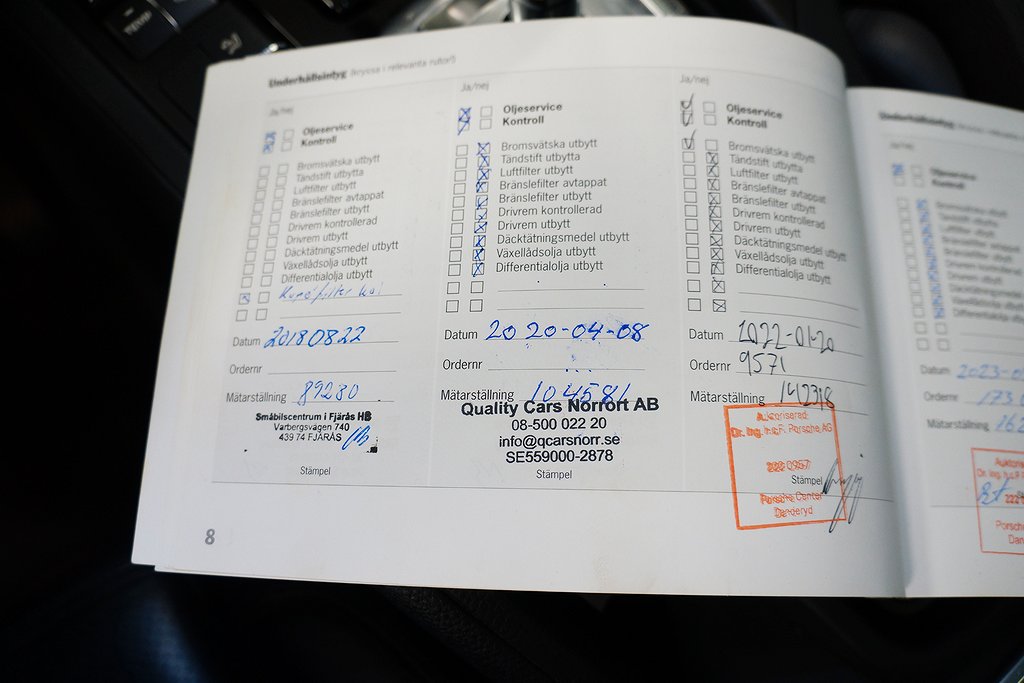 Underhållsintyg (kryssa i relevanta rutor!)
Ja/nej
Oljeservice
Kontroll
Bromsvätska utbytt
Tändstift utbytta
Luftfilter utbytt
Bränslefilter avtappat
Bränslefilter utbytt
Drivrem kontrollerad
Drivrem utbytt
Däcktätningsmedel utbytt
Växellådsolja utbytt
Differentialolja utbytt
Datum 20180822
Ordernr
Mätarställning 89230
Småbilscentrum i Fjärås HB
Varbergsvägen 740
439 74 FJÄRÅS
Stämpel
8
Ja/nej
Oljeservice
Kontroll
Bromsvätska utbytt
Tändstift utbytta
Luftfilter utbytt
Bränslefilter avtappat
Bränslefilter utbytt
Drivrem kontrollerad
Drivrem utbytt
Däcktätningsmedel utbytt
Växellådsolja utbytt
Differentialolja utbytt
Datum 2020-04-08
Ordernr
Mätarställning 104581
Quality Cars Norrort AB
08-500 022 20
info@qcarsnorr.se
SE559000-2878
Stämpel
Ja/nej
Oljeservice
Kontroll
Bromsvätska utbytt
Tändstift utbytta
Luftfilter utbytt
Bränslefilter avtappat
Bränslefilter utbytt
Drivrem kontrollerad
Drivrem utbytt
Däcktätningsmedel utbytt
Växellådsolja utbytt
Differentialolja utbytt
Datum 2022-01-20
Ordernr 9571
Mätarställning 142318
Auktoriserad
Dr. Ing. h.c.F. Porsche AG
222 0957
Stämpel
Porsche Center
Danderyd
Underhållsintyg
Oljeservice
Kontroll
Bromsvätska utbytt
Tändstift utbytta
Luftfilter utbytt
Datum 2023-0
Ordernr
Mätarställning 162
Dr. Ing. h.c.F.
222
Porsche
Dan